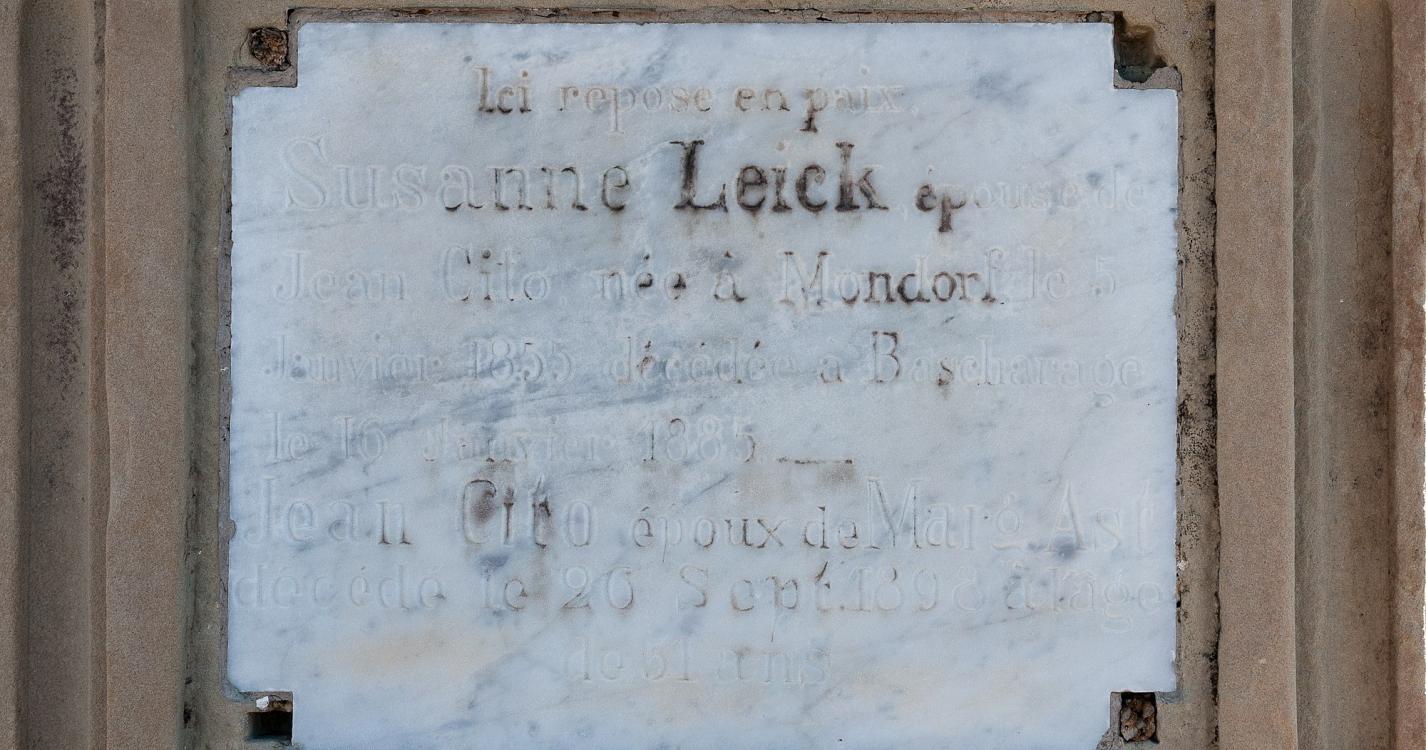 Ici repose en paix
Susanne Leick épouse de
Jean Cito, née à Mondorf le 5
Janvier 1855 décédée à Bascharage
le 16 Janvier 1885 __
Jean Cito époux de Marg. Ast
décédé le 26 Sept. 1898 à l'âge
de 51 ans